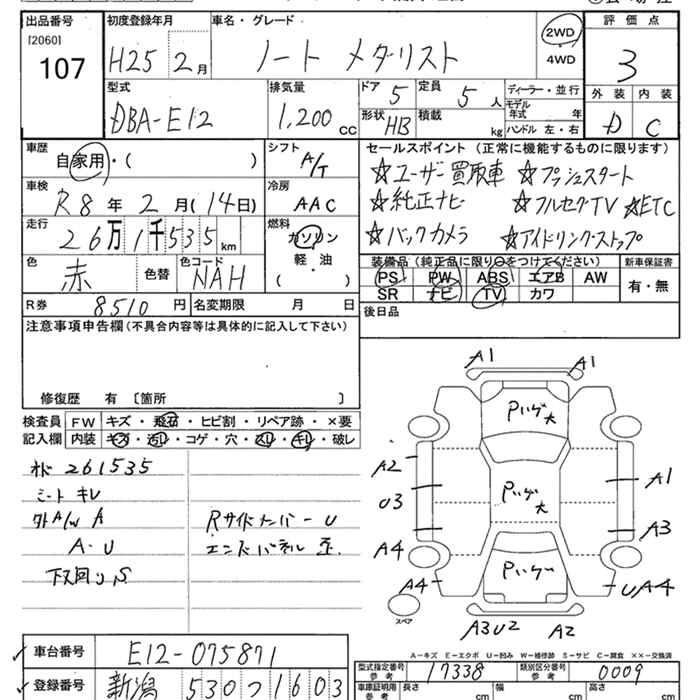 出品番号 初度登録年月 車名・グレード 評価点
[2060] H25 2月 ノート メダリスト 2WD 3
107 4WD
型式 排気量 ドア 5 定員 5人 ディーラー・並行 外装 内装
DBA-E12 1,200cc 形状 HB 積載 kg モデル年式 年 D C
ハンドル 左・右
車歴 シフト セールスポイント (正常に機能するものに限ります)
自家用・( ) A/T ☆ユーザー買取車 ☆プッシュスタート
車検 R8年2月(14日) 冷房 AAC ☆純正ナビ ☆フルセグTV ☆ETC
走行 26万1千535km 燃料 ガソリン ☆バックカメラ ☆アイドリングストップ
軽・油
( )
色 赤 色替 色コード NAH 装備品 (純正品に限り○をつけてください) 新車保証書
PS PW ABS エアB AW 有・無
R券 8510円 名変期限 月 日 SR ナビ TV カワ
注意事項申告欄(不具合内容等は具体的に記入して下さい) 後日品
修復歴 有 〔箇所 〕
検査員 FW キズ・飛石・ヒビ割・リペア跡・×要
記入欄 内装 キズ・汚れ・コゲ・穴・スレ・キレ・破レ
261535
シートキレ
外A/W A Rサイドメンバー U
A・U エンドパネル 歪
下回りS
A1 A1
Pハゲ大
A2 A1
U3 Pハゲ大
A3
A4
Pハゲ
A4 UA4
スペア
A3U2 A2
A-キズ E-エクボ U-凹み W-補修跡 S-サビ C-腐食 ××-交換済
車台番号 E12-075871 型式指定番号 参考 17338 類別区分番号 参考 0009
登録番号 新潟 530 つ 1603 車庫証明用 参考 長さ cm 幅 cm 高さ cm